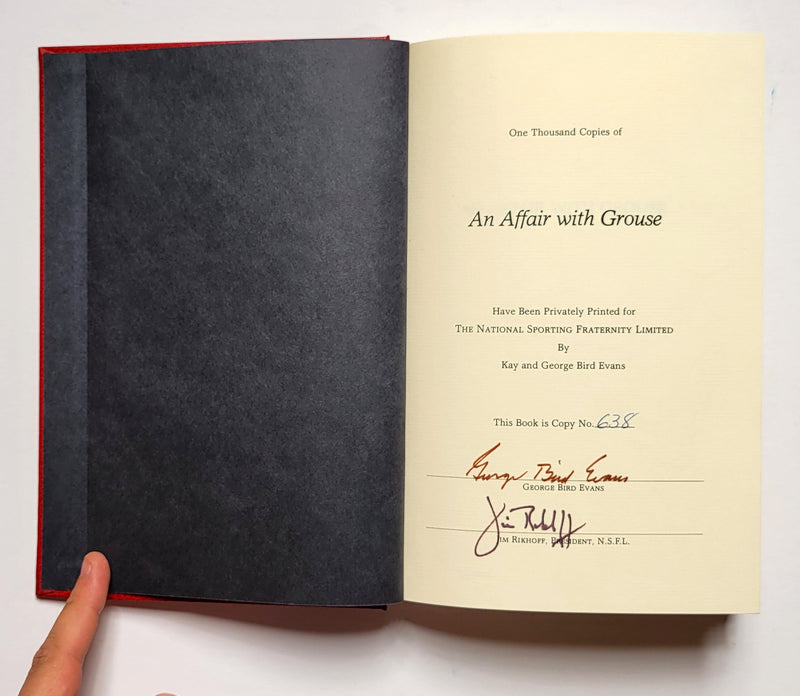 One Thousand Copies of
An Affair with Grouse
Have Been Privately Printed for
THE NATIONAL SPORTING FRATERNITY LIMITED
By
Kay and George Bird Evans
This Book is Copy No. 638
George Bird Evans
GEORGE BIRD EVANS
Jim Rikhoff
JIM RIKHOFF, PRESIDENT, N.S.F.L.